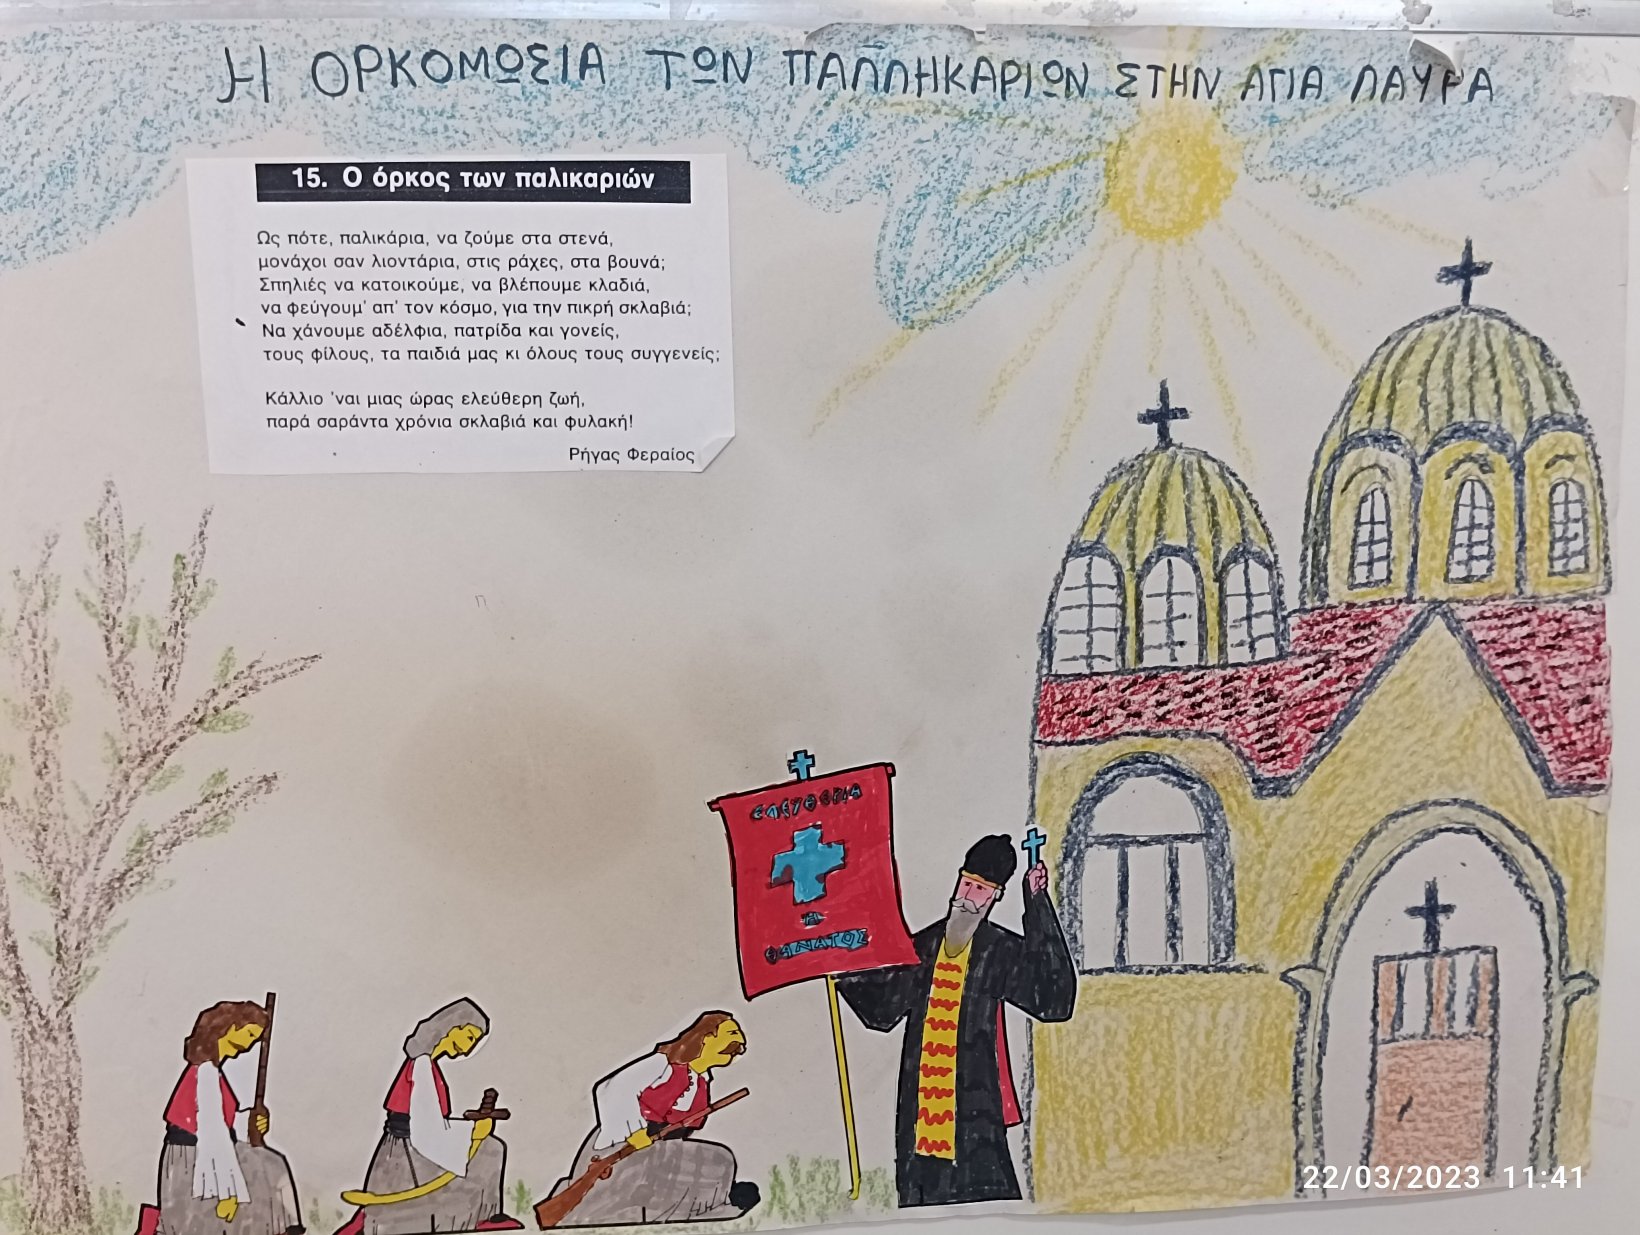 Η ΟΡΚΟΜΩΣΙΑ ΤΩΝ ΠΑΛΛΗΚΑΡΙΩΝ ΣΤΗΝ ΑΓΙΑ ΛΑΥΡΑ
15. Ο όρκος των παλικαριών
Ως πότε, παλικάρια, να ζούμε στα στενά,
μονάχοι σαν λιοντάρια, στις ράχες, στα βουνά;
Σπηλιές να κατοικούμε, να βλέπουμε κλαδιά,
να φεύγουμ' απ' τον κόσμο, για την πικρή σκλαβιά;
Να χάνουμε αδέλφια, πατρίδα και γονείς,
τους φίλους, τα παιδιά μας κι όλους τους συγγενείς;
Κάλλιο 'ναι μιας ώρας ελεύθερη ζωή,
παρά σαράντα χρόνια σκλαβιά και φυλακή!
Ρήγας Φεραίος
ΕΛΕΥΘΕΡΙΑ
Ή
ΘΑΝΑΤΟΣ
22/03/2023 11:41